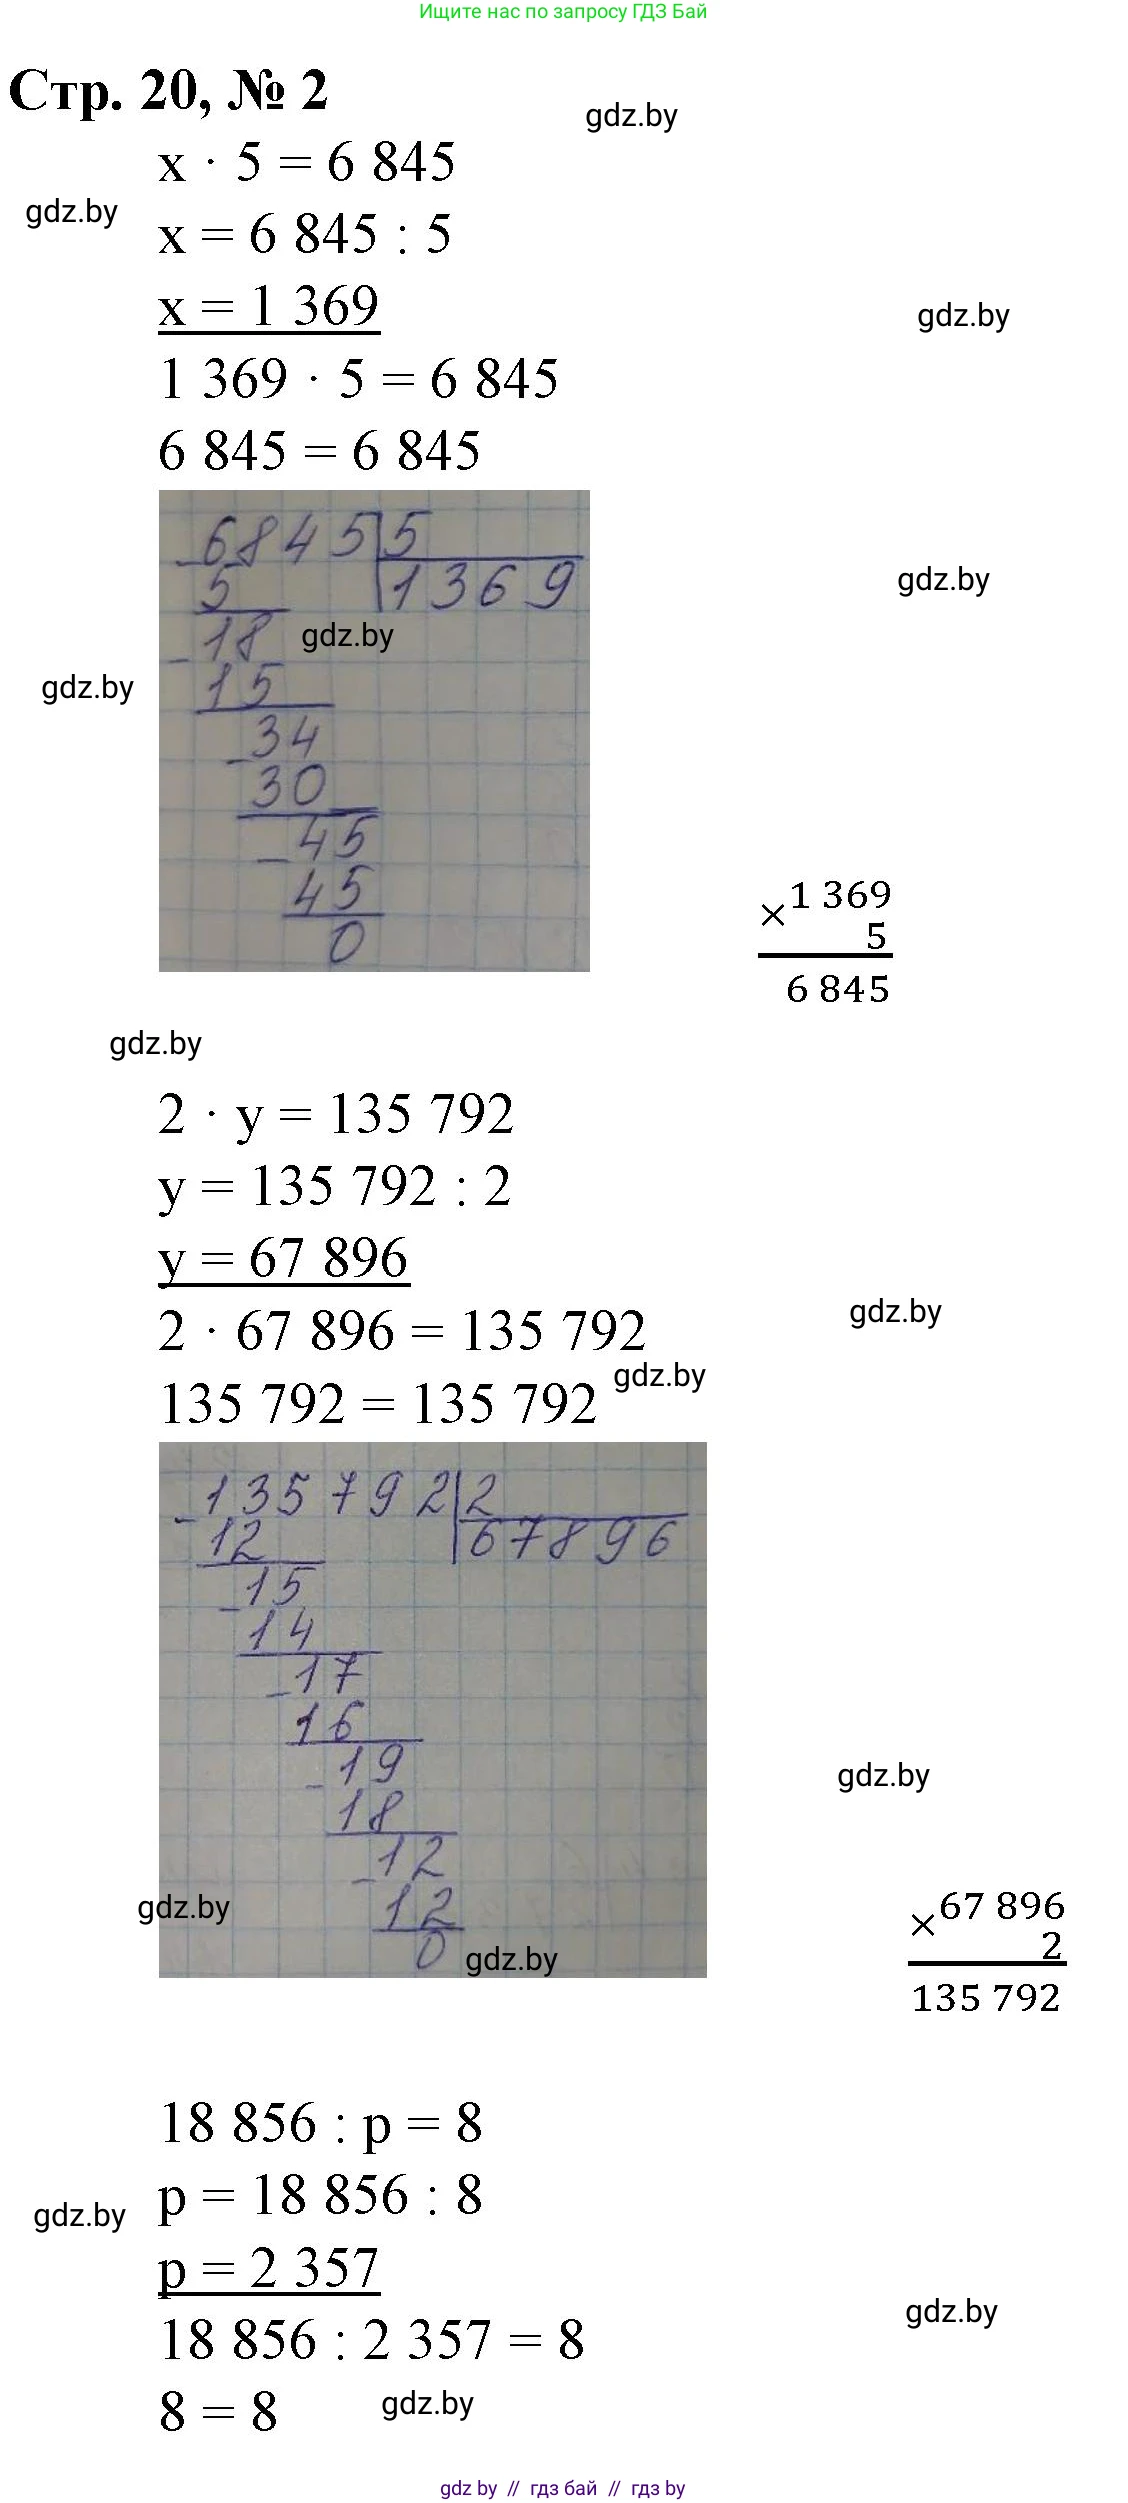 Ищите нас по запросу ГДЗ Бай
Стр. 20, № 2
gdz.by
x · 5 = 6 845
gdz.by
x = 6 845 : 5
x = 1 369
gdz.by
1 369 · 5 = 6 845
6 845 = 6 845
- 6845 | 5
5 | 1369
gdz.by
- 18
gdz.by
15
gdz.by
- 34
30
- 45
45
0
× 1 369
5
6 845
gdz.by
2 · y = 135 792
y = 135 792 : 2
y = 67 896
gdz.by
2 · 67 896 = 135 792
gdz.by
135 792 = 135 792
- 135792 | 2
12 | 67896
- 15
14
- 17
16
- 19
gdz.by
18
- 12
gdz.by
12
0
gdz.by
× 67 896
2
135 792
18 856 : p = 8
p = 18 856 : 8
gdz.by
p = 2 357
gdz.by
18 856 : 2 357 = 8
8 = 8
gdz.by
gdz by // гдз бай // gdz by